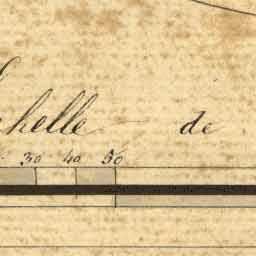 chelle de
30 40 50